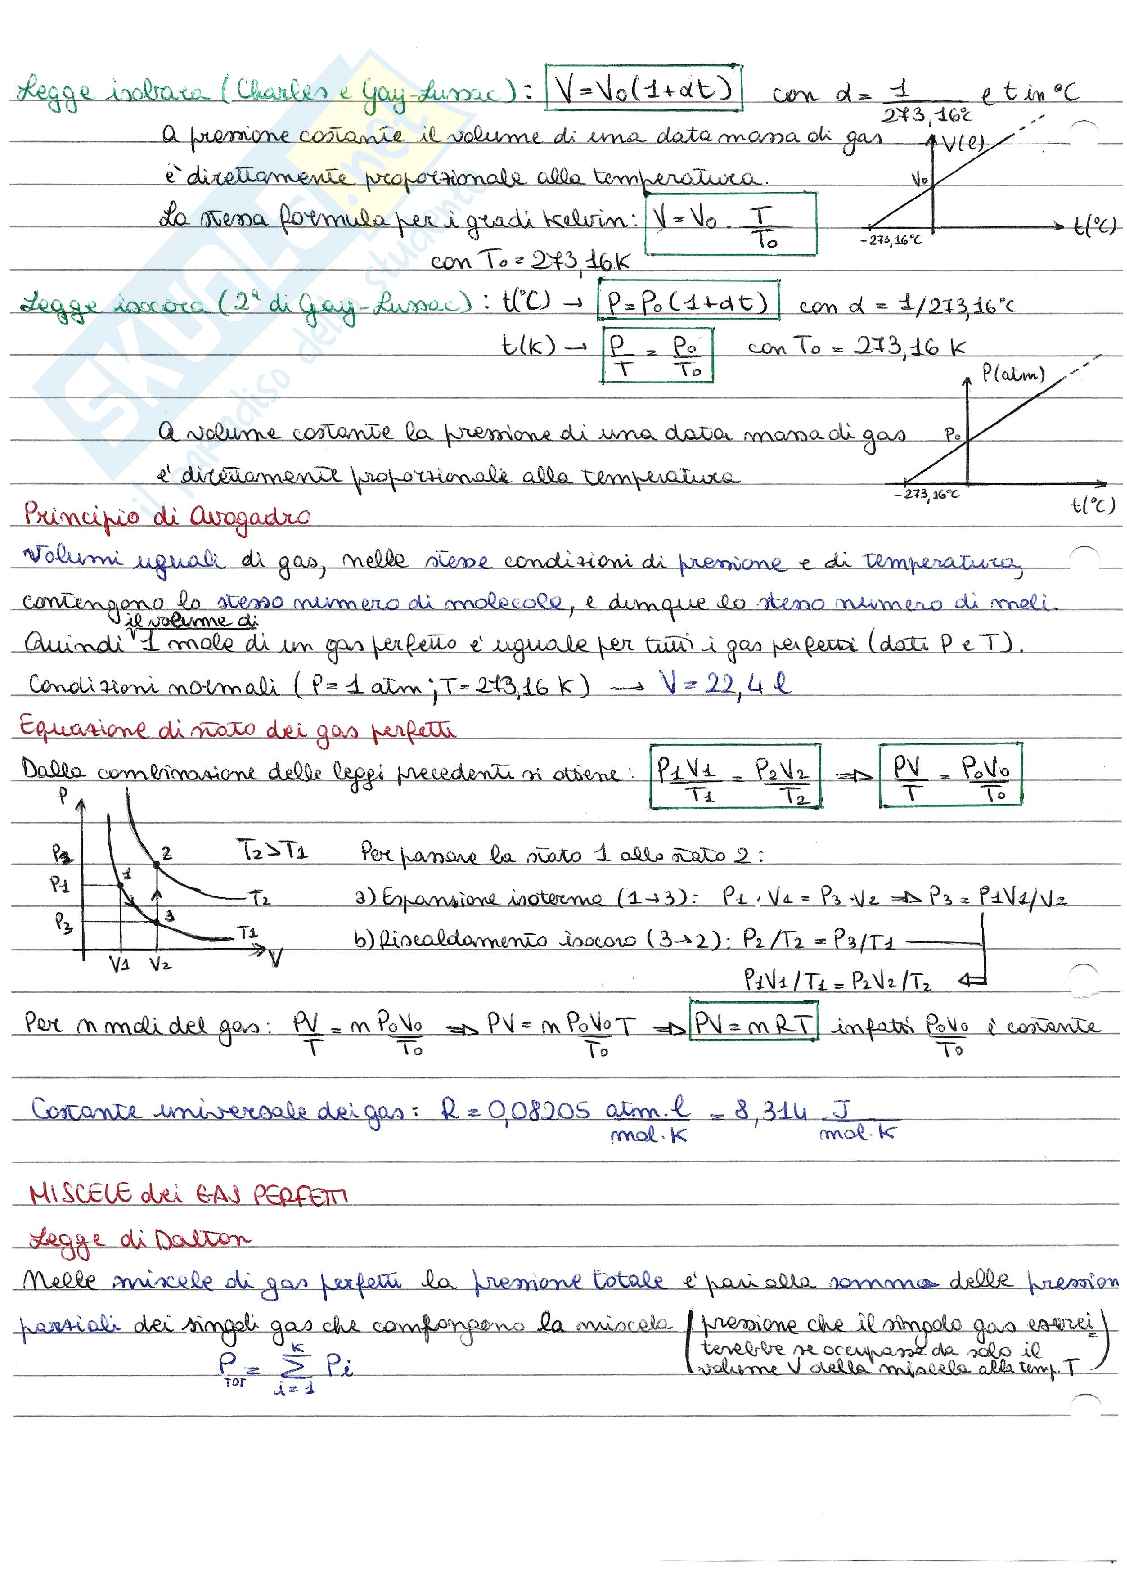 Legge isobara (Charles e Gay-Lussac): V=V₀(1+αt) con α = 1/273,16°C e t in °C
A pressione costante il volume di una data massa di gas
è direttamente proporzionale alla temperatura.
V(l)
V₀
-273,16°C
t(°C)
La stessa formula per i gradi Kelvin: V = V₀ · T/T₀
con T₀ = 273,16 K
Legge isocora (2ª di Gay-Lussac): t(°C) → P=P₀(1+αt) con α = 1/273,16°C
t(K) → P/T = P₀/T₀ con T₀ = 273,16 K
P(atm)
P₀
-273,16°C
t(°C)
A volume costante la pressione di una data massa di gas
è direttamente proporzionale alla temperatura
Principio di Avogadro
Volumi uguali di gas, nelle stesse condizioni di pressione e di temperatura,
contengono lo stesso numero di molecole, e dunque lo stesso numero di moli.
il volume di
Quindi 1 mole di un gas perfetto è uguale per tutti i gas perfetti (dati P e T).
Condizioni normali (P=1 atm; T=273,16 K) → V = 22,4 l
Equazione di stato dei gas perfetti
Dalla combinazione delle leggi precedenti si ottiene: P₁V₁/T₁ = P₂V₂/T₂ ⇒ PV/T = P₀V₀/T₀
P
P₂
P₁
P₃
1
2
3
T₂>T₁
T₂
T₁
V₁ V₂
V
Per passare la stato 1 allo stato 2:
a) Espansione isoterma (1→3): P₁·V₁ = P₃·V₂ ⇒ P₃ = P₁V₁/V₂
b) Riscaldamento isocoro (3→2): P₂/T₂ = P₃/T₁
P₁V₁/T₁ = P₂V₂/T₂
Per n moli del gas: PV/T = n P₀V₀/T₀ ⇒ PV = n P₀V₀/T₀ T ⇒ PV = nRT infatti P₀V₀/T₀ è costante
Costante universale dei gas: R = 0,08205 atm·l/mol·K = 8,314 J/mol·K
MISCELE dei GAS PERFETTI
Legge di Dalton
Nelle miscele di gas perfetti la pressione totale è pari alla somma delle pression
parziali dei singoli gas che compongono la miscela (pressione che il singolo gas eserci=
terebbe se occupasse da solo il
volume V della miscela alla temp. T)
P_TOT = Σ_{i=1}^{K} Pi
SKUOLA.net
il paradiso dello studente